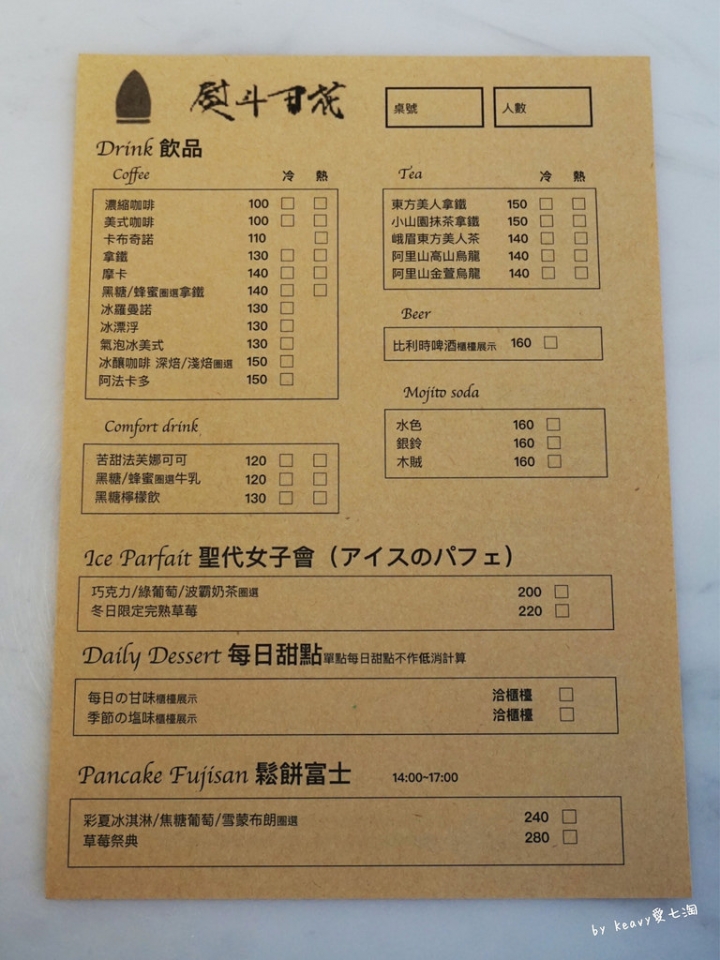 熨斗目花
桌號
人數
Drink 飲品
Coffee 冷 熱
濃縮咖啡 100 □ □
美式咖啡 100 □ □
卡布奇諾 110 □
拿鐵 130 □ □
摩卡 140 □ □
黑糖/蜂蜜圈選拿鐵 140 □ □
冰羅曼諾 130 □
冰漂浮 130 □
氣泡冰美式 130 □
冰釀咖啡 深焙/淺焙圈選 150 □
阿法卡多 150 □
Comfort drink
苦甜法芙娜可可 120 □ □
黑糖/蜂蜜圈選牛乳 120 □ □
黑糖檸檬飲 130 □ □
Tea 冷 熱
東方美人拿鐵 150 □ □
小山園抹茶拿鐵 150 □ □
峨眉東方美人茶 140 □ □
阿里山高山烏龍 140 □ □
阿里山金萱烏龍 140 □ □
Beer
比利時啤酒櫃檯展示 160 □
Mojito soda
水色 160 □
銀鈴 160 □
木賊 160 □
Ice Parfait 聖代女子會（アイスのパフェ）
巧克力/綠葡萄/波霸奶茶圈選 200 □
冬日限定完熟草莓 220 □
Daily Dessert 每日甜點單點每日甜點不作低消計算
每日の甘味櫃檯展示 洽櫃檯 □
季節の塩味櫃檯展示 洽櫃檯 □
Pancake Fujisan 鬆餅富士 14:00~17:00
彩夏冰淇淋/焦糖葡萄/雪蒙布朗圈選 240 □
草莓祭典 280 □
by keavy愛七淘